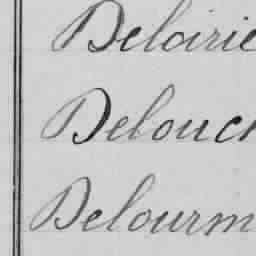 Deloirie
Delouch
Delourm